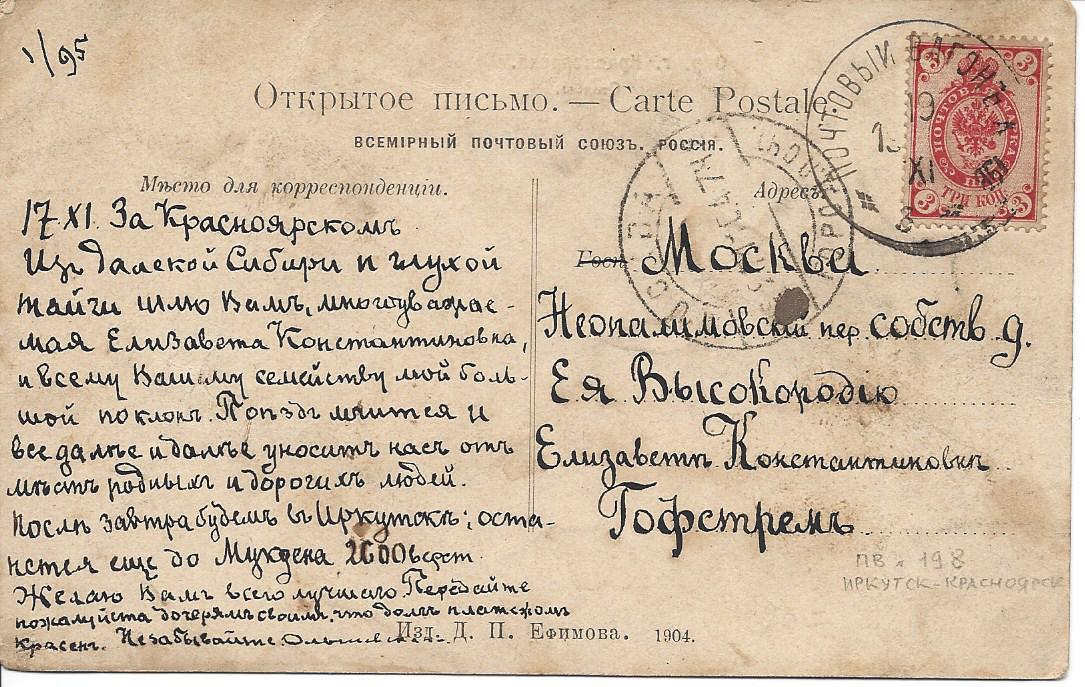 1/95
Открытое письмо. — Carte Postale
ВСЕМІРНЫЙ ПОЧТОВЫЙ СОЮЗЪ. РОССІЯ.
Мѣсто для корреспонденціи.
17 XI. За Красноярскомъ
Изъ далекой Сибири и глухой
тайги шлю Вамъ, многоуважае-
мая Елизавета Константиновна,
и всему Вашему семейству мой боль-
шой поклонъ. Поѣздъ мчится и
все далѣе и далѣе уноситъ насъ отъ
мѣстъ родныхъ и дорогихъ людей.
Послѣ завтра будемъ въ Иркутскѣ; оста-
нется еще до Мукдена 2600 верст.
Желаю Вамъ всего лучшаго. Передайте
пожалуйста дочерямъ своимъ, что долгъ платежомъ
красенъ. Незабывайте.
Адресъ.
Москва
Неопалимовскій пер. собств. д.
Ея Высокородію
Елизаветѣ Константиновнѣ
Гофстремъ
ПОЧТОВЫЙ ВАГОНЪ
19
XI
ПОЧТОВАЯ МАРКА
ТРИ КОП.
3 3 3 3
МОСКВА
ПВ № 198
ИРКУТСК-КРАСНОЯРСК
Изд. Д. П. Ефимова. 1904.